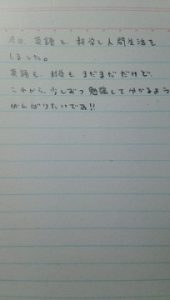 今日、英語と 社会と人間生活を
しました。
英語も、社会も まだまだ だけど
これから、少しずつ 勉強して 分かるよう
がんばりたいです!!